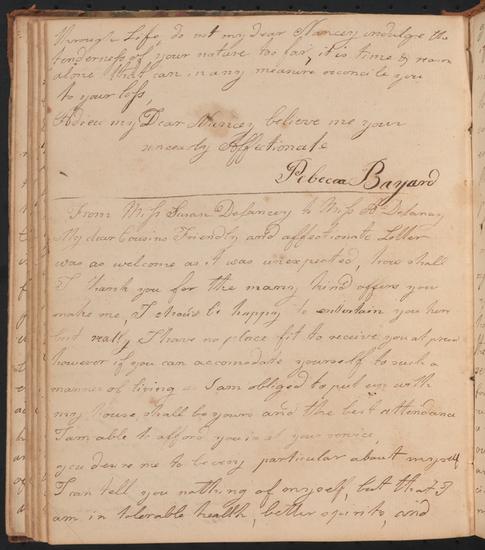 through Life, do not my dear Nancey indulge the
tenderness of your nature too far, it is time & reason
alone that can in any measure reconcile you
to your loss,
Adieu my Dear Nancey believe me your
sincerely Affectionate
Rebecca Bayard
From Miss Susan Delancey to Miss Bn Delancey
My dear Cousins Friendly and affectionate Letter
was as welcome as it was unexpected, how shall
I thank you for the many kind offers you
make me, I should be happy to entertain you here
but really I have no place fit to receive you at presnt
however if you can accomodate yourself to such a
manner of living as I am obliged to put up with
my house shall be yours and the best attendance
I am able to afford you is at your service,
you desire me to be very particular about myself
I can tell you nothing of myself, but that I
am in tolerable health, better spirits, and